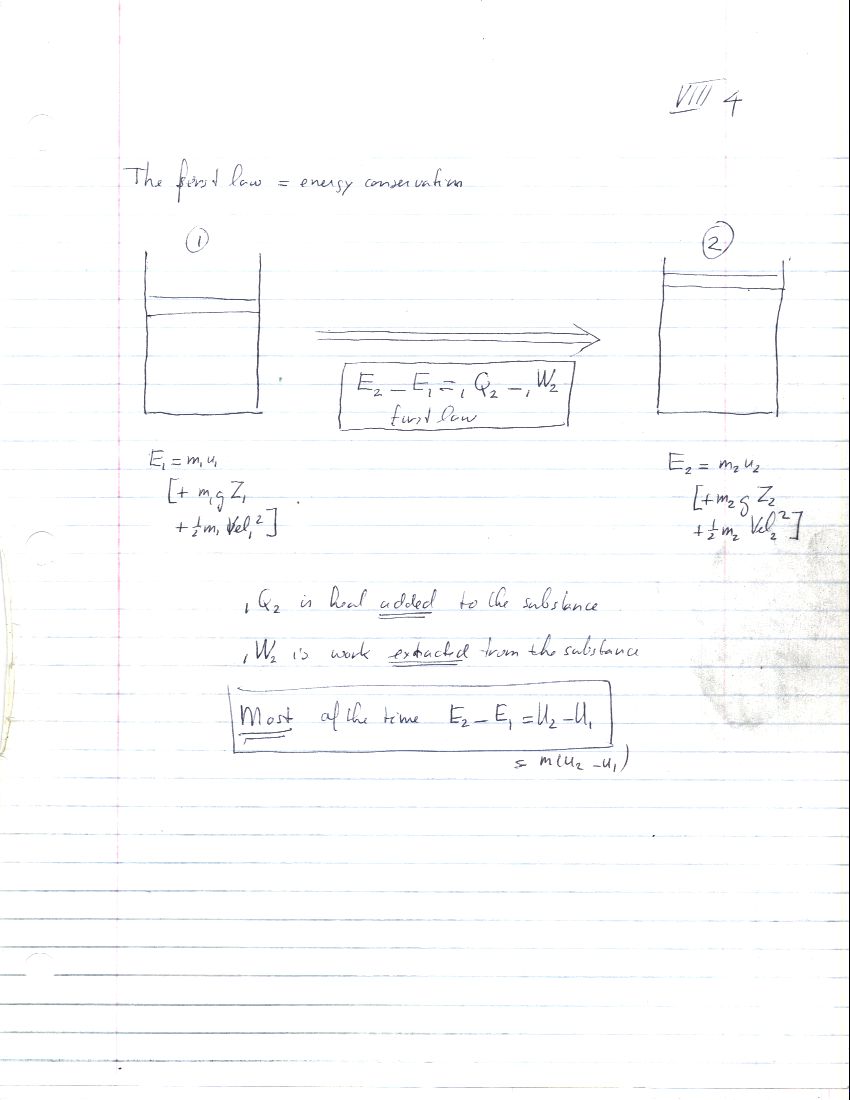 VIII 4
The first law = energy conservation
① ②
E₂ – E₁ = ₁Q₂ – ₁W₂
first law
E₁ = m₁u₁
[+ m₁gZ₁
+ ½m₁ Vel₁²]
E₂ = m₂u₂
[+m₂gZ₂
+ ½m₂ Vel₂²]
₁Q₂ is heat added to the substance
₁W₂ is work extracted from the substance
Most of the time E₂ – E₁ = U₂ – U₁
= m(u₂ – u₁)